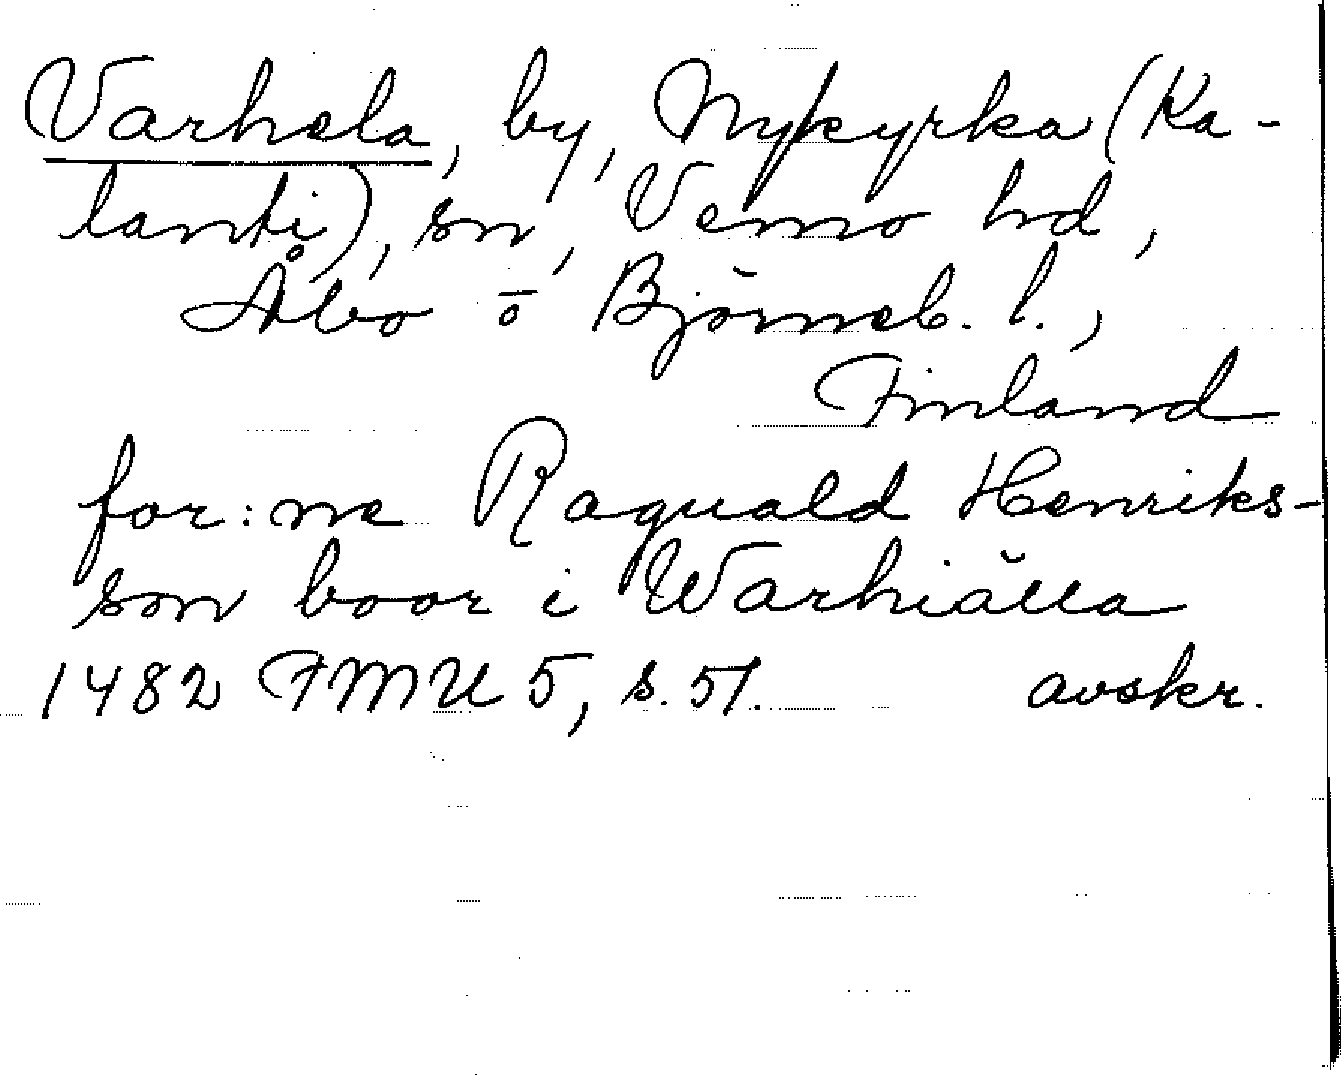 Varhela, by, Nykyrka (Ka-
lanti), sn, Vemo hd,
Åbo o Björneb. l.,
Finland
for:ne Raguald Henriks-
son boor i Warhiälla
1482 FMU 5, s. 51. avskr.